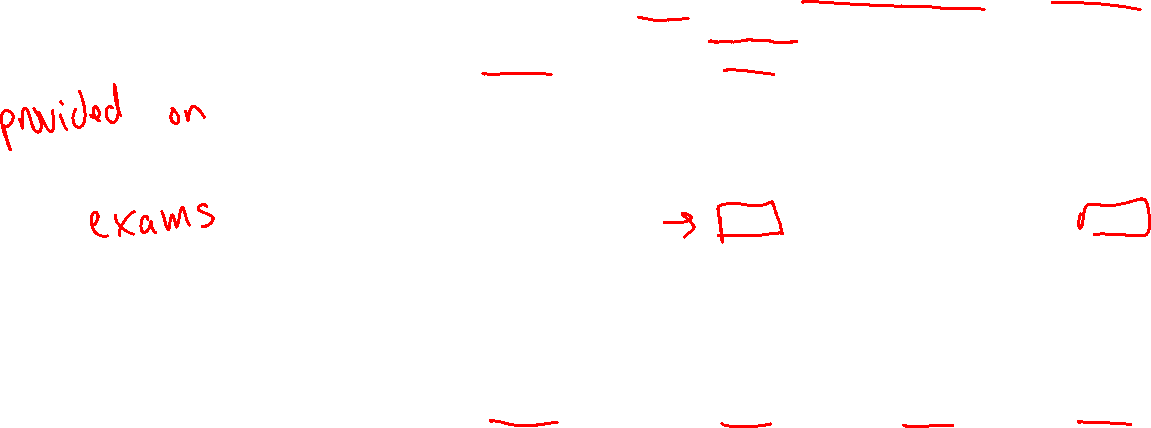 provided on
exams